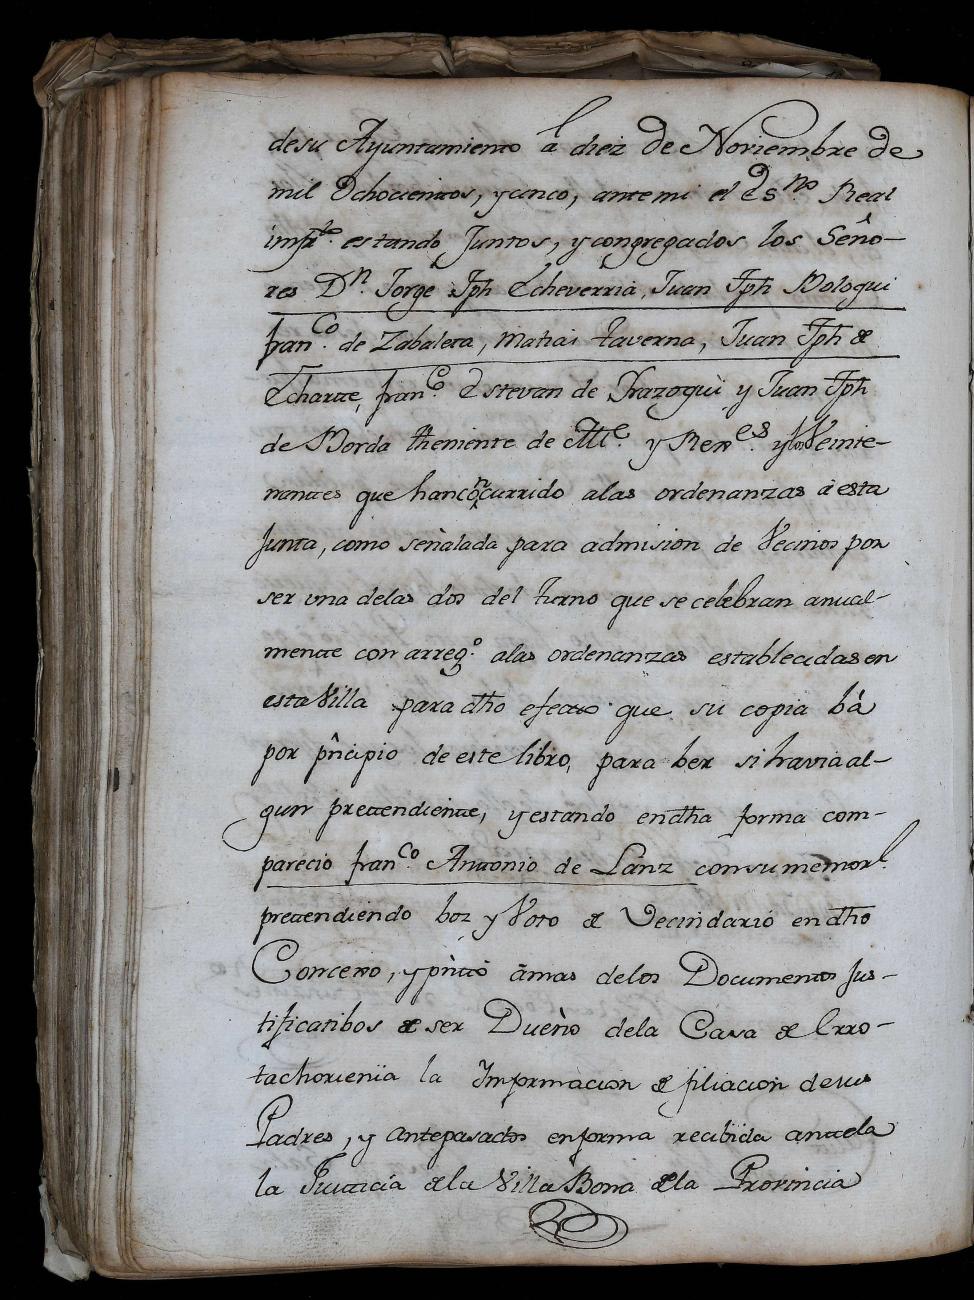 desu Ayuntamiento â diez De Noviembre de
mil Ochocientos, y cinco, ante mi el Es.no Real
impto. estando Juntos, y congregados los Seño-
res Dn. Jorge Jph Echeverria, Juan Jph Bologui
fran.co de Zabaleta, Matias taverna, Juan Jph de
Echarte, fran.co Estevan de Irazogui y Juan Jph
de Borda theniente de Alle. y Rexes. y los Veinte-
nantes que han concurrido alas ordenanzas â esta
Junta, como señalada para admision de Vecinos por
ser una delas dos del turno que se celebran anual-
mente con arreg.o alas ordenanzas establecidas en
esta Villa para dho efecto que su copia bá
por pñcipio de este libro, para ber si havia al-
gun pretendiente, y estando en dha forma com-
parecio fran.co Antonio de Lanz con su memorl.
pretendiendo boz y Voto de Vecindario en dho
Concejo, y pñtó ãmas delos Documentos Jus-
tificatibos de ser Dueño dela Casa de Erro-
tachorienïa la Informacion de filiacion de sus
Padres, y Antepasados en forma recibida ante la
la Justicia de la Villa Bona de la Provincia